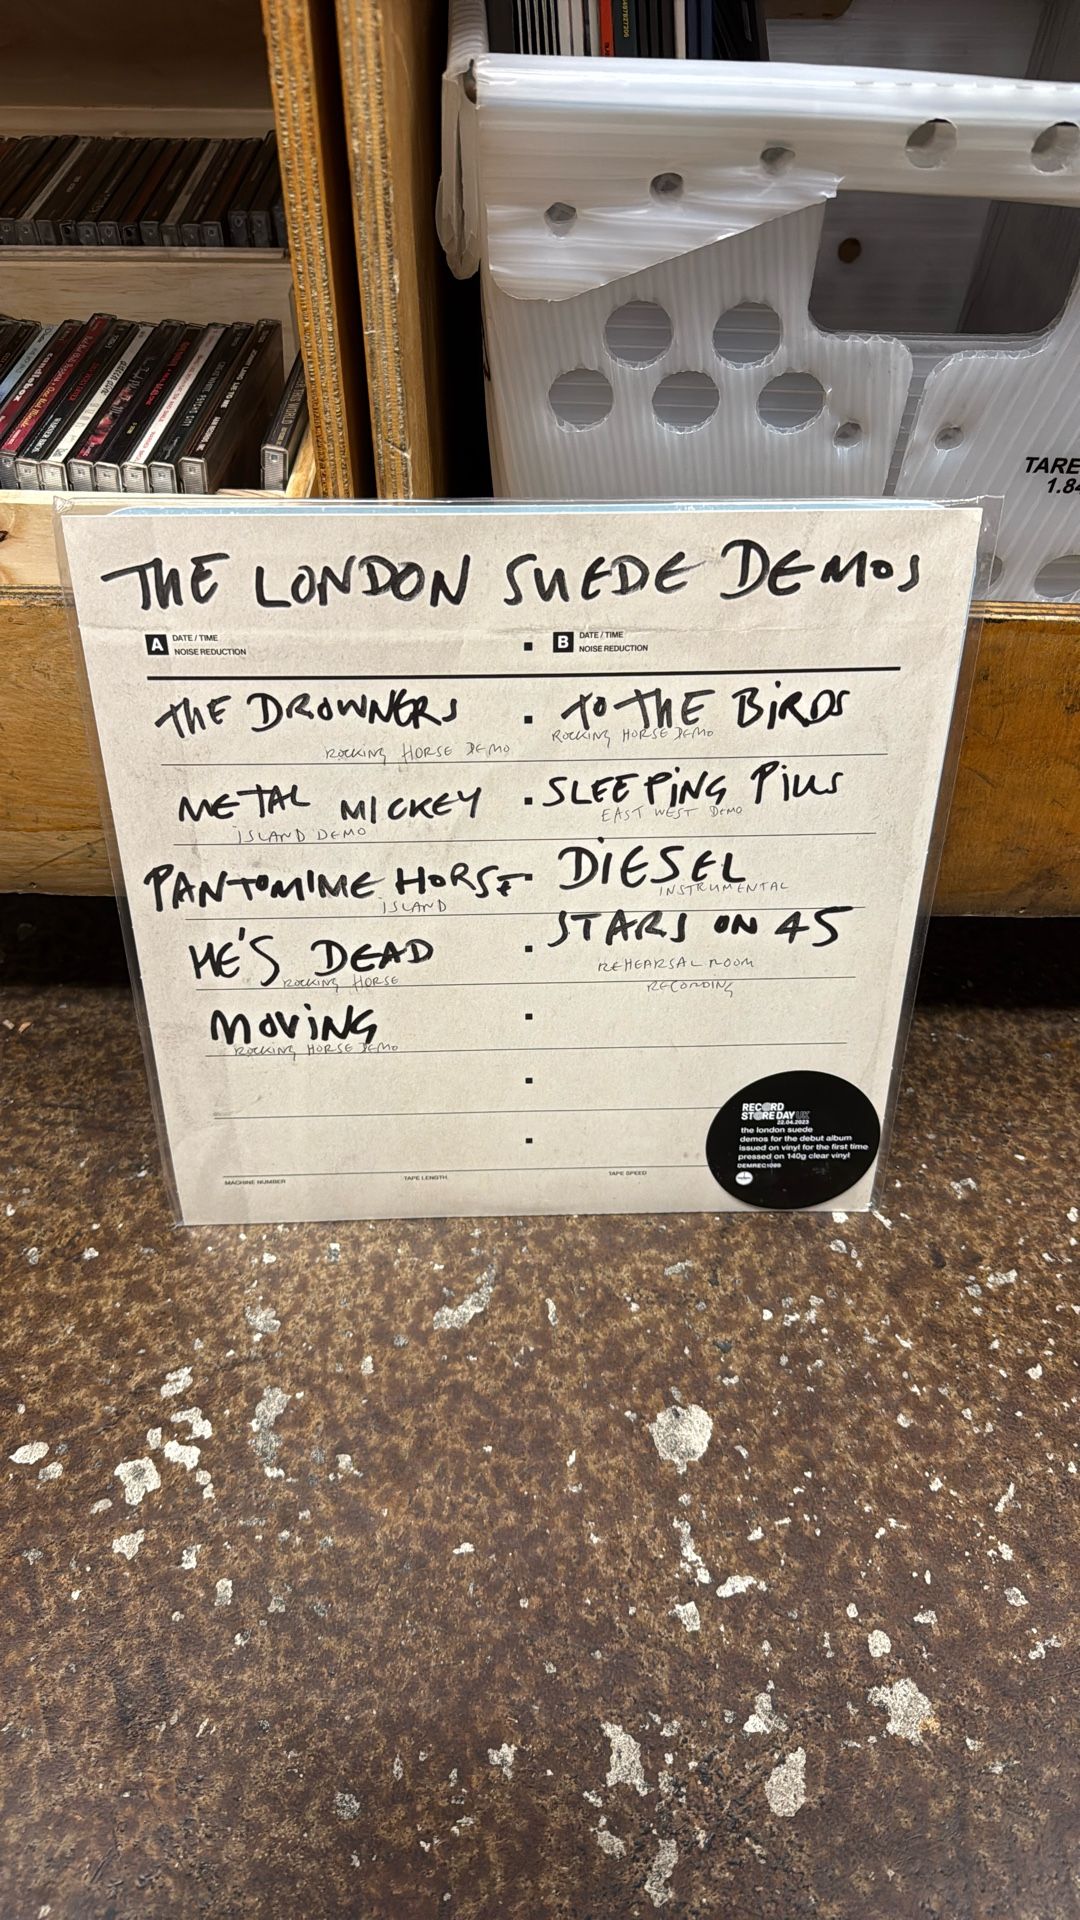 TARE
1.84
THE LONDON SUEDE DEMOS
A DATE / TIME
NOISE REDUCTION
B DATE / TIME
NOISE REDUCTION
THE DROWNERS
ROCKING HORSE DEMO
METAL MICKEY
ISLAND DEMO
PANTOMIME HORSE
ISLAND
HE'S DEAD
ROCKING HORSE
MOVING
ROCKING HORSE DEMO
TO THE BIRDS
ROCKING HORSE DEMO
SLEEPING PILLS
EAST WEST DEMO
DIESEL
INSTRUMENTAL
STARS ON 45
REHEARSAL ROOM
RECORDING
MACHINE NUMBER
TAPE LENGTH
TAPE SPEED
RECORD
STORE DAY UK
22.04.2023
the london suede
demos for the debut album
issued on vinyl for the first time
pressed on 140g clear vinyl